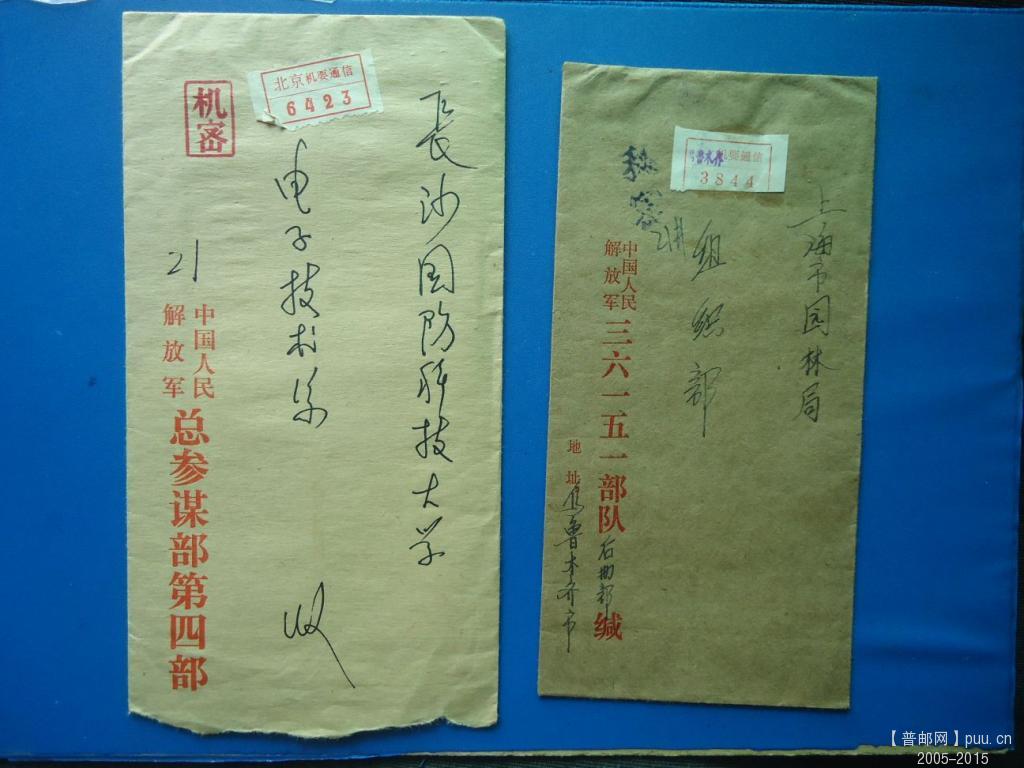 机密
北京机要通信
6423
長沙国防科技大学
电子技术系
收
21
中国人民
解放军
总参谋部第四部
机要通信
3844
秘密
上海市园林局
组织部
中国人民
解放军
三六一五一部队
缄
地址
乌鲁木齐市
【普邮网】puu.cn
2005-2015